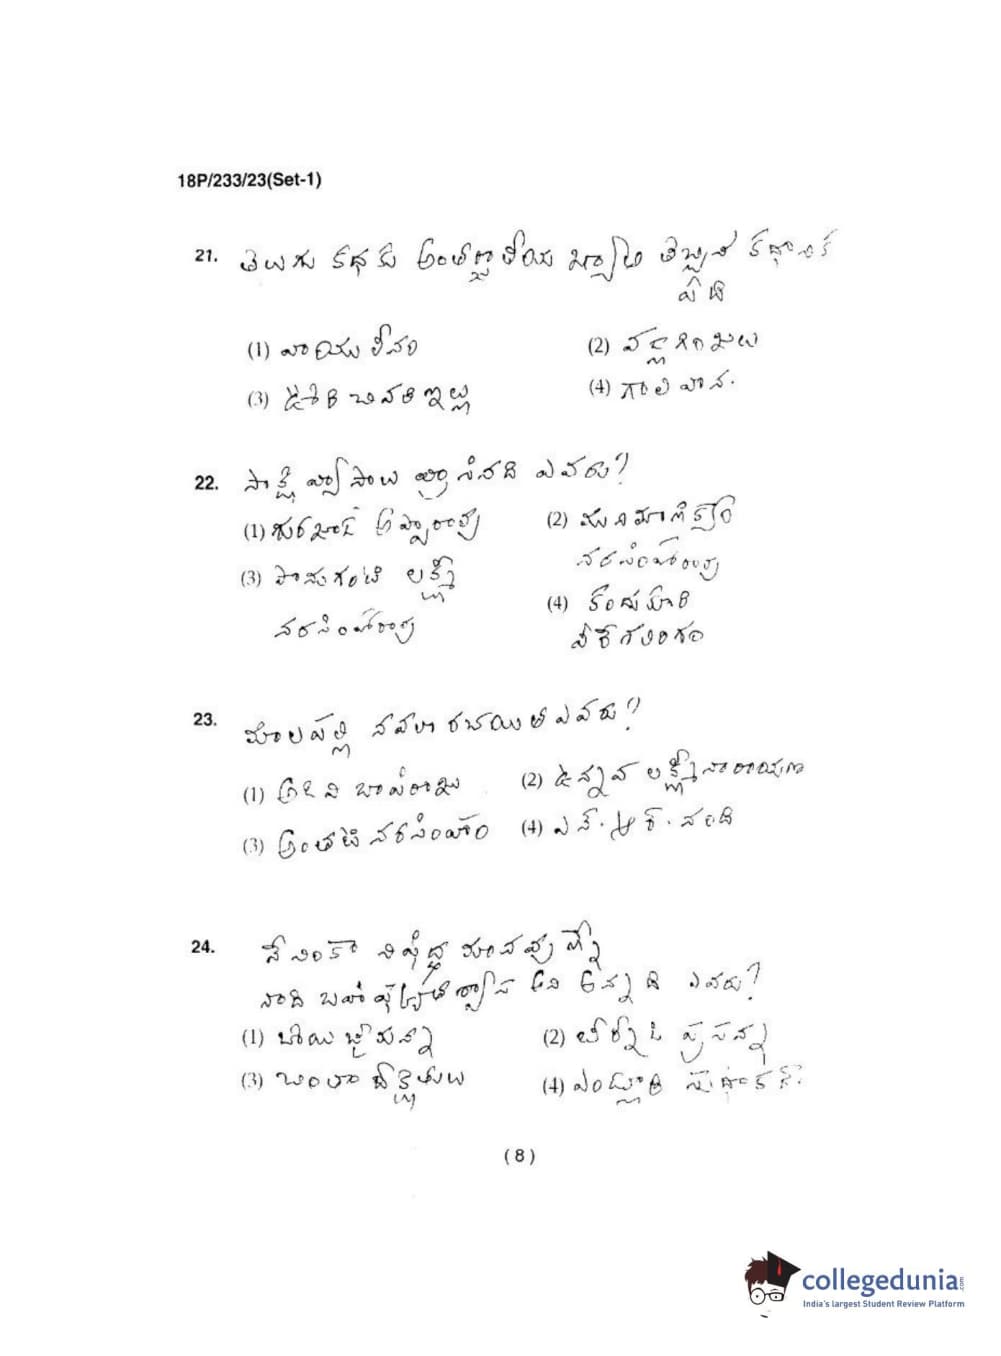 18P/233/23(Set-1)
21. తెలుగు కథకు అంతర్జాతీయ ఖ్యాతి తెచ్చిన కథానిక
ఏది
(1) వాయులీనం (2) వడ్లగింజలు
(3) ఊరి చివరి ఇల్లు (4) గాలివాన.
22. సాక్షి వ్యాసాలు వ్రాసినది ఎవరు?
(1) గురజాడ అప్పారావు (2) మునిమాణిక్యం
నరసింహారావు
(3) పానుగంటి లక్ష్మీ
(4) కందుకూరి
నరసింహారావు
వీరేశలింగం
23. మాలపల్లి నవలా రచయిత ఎవరు?
(1) అడివి బాపిరాజు (2) ఉన్నవ లక్ష్మీనారాయణ
(3) అంతటి నరసింహం (4) ఎన్. ఆర్. నంది
24. నేనింకా నిషిద్ధ మానవుణ్నే
నాది బహిష్కృత శ్వాస అని అన్నది ఎవరు?
(1) బోయి జైమన్న (2) ప్రసన్న
(3) (4) ఎండ్లూరి సుధాకర్
(8)
collegedunia.com
India's largest Student Review Platform